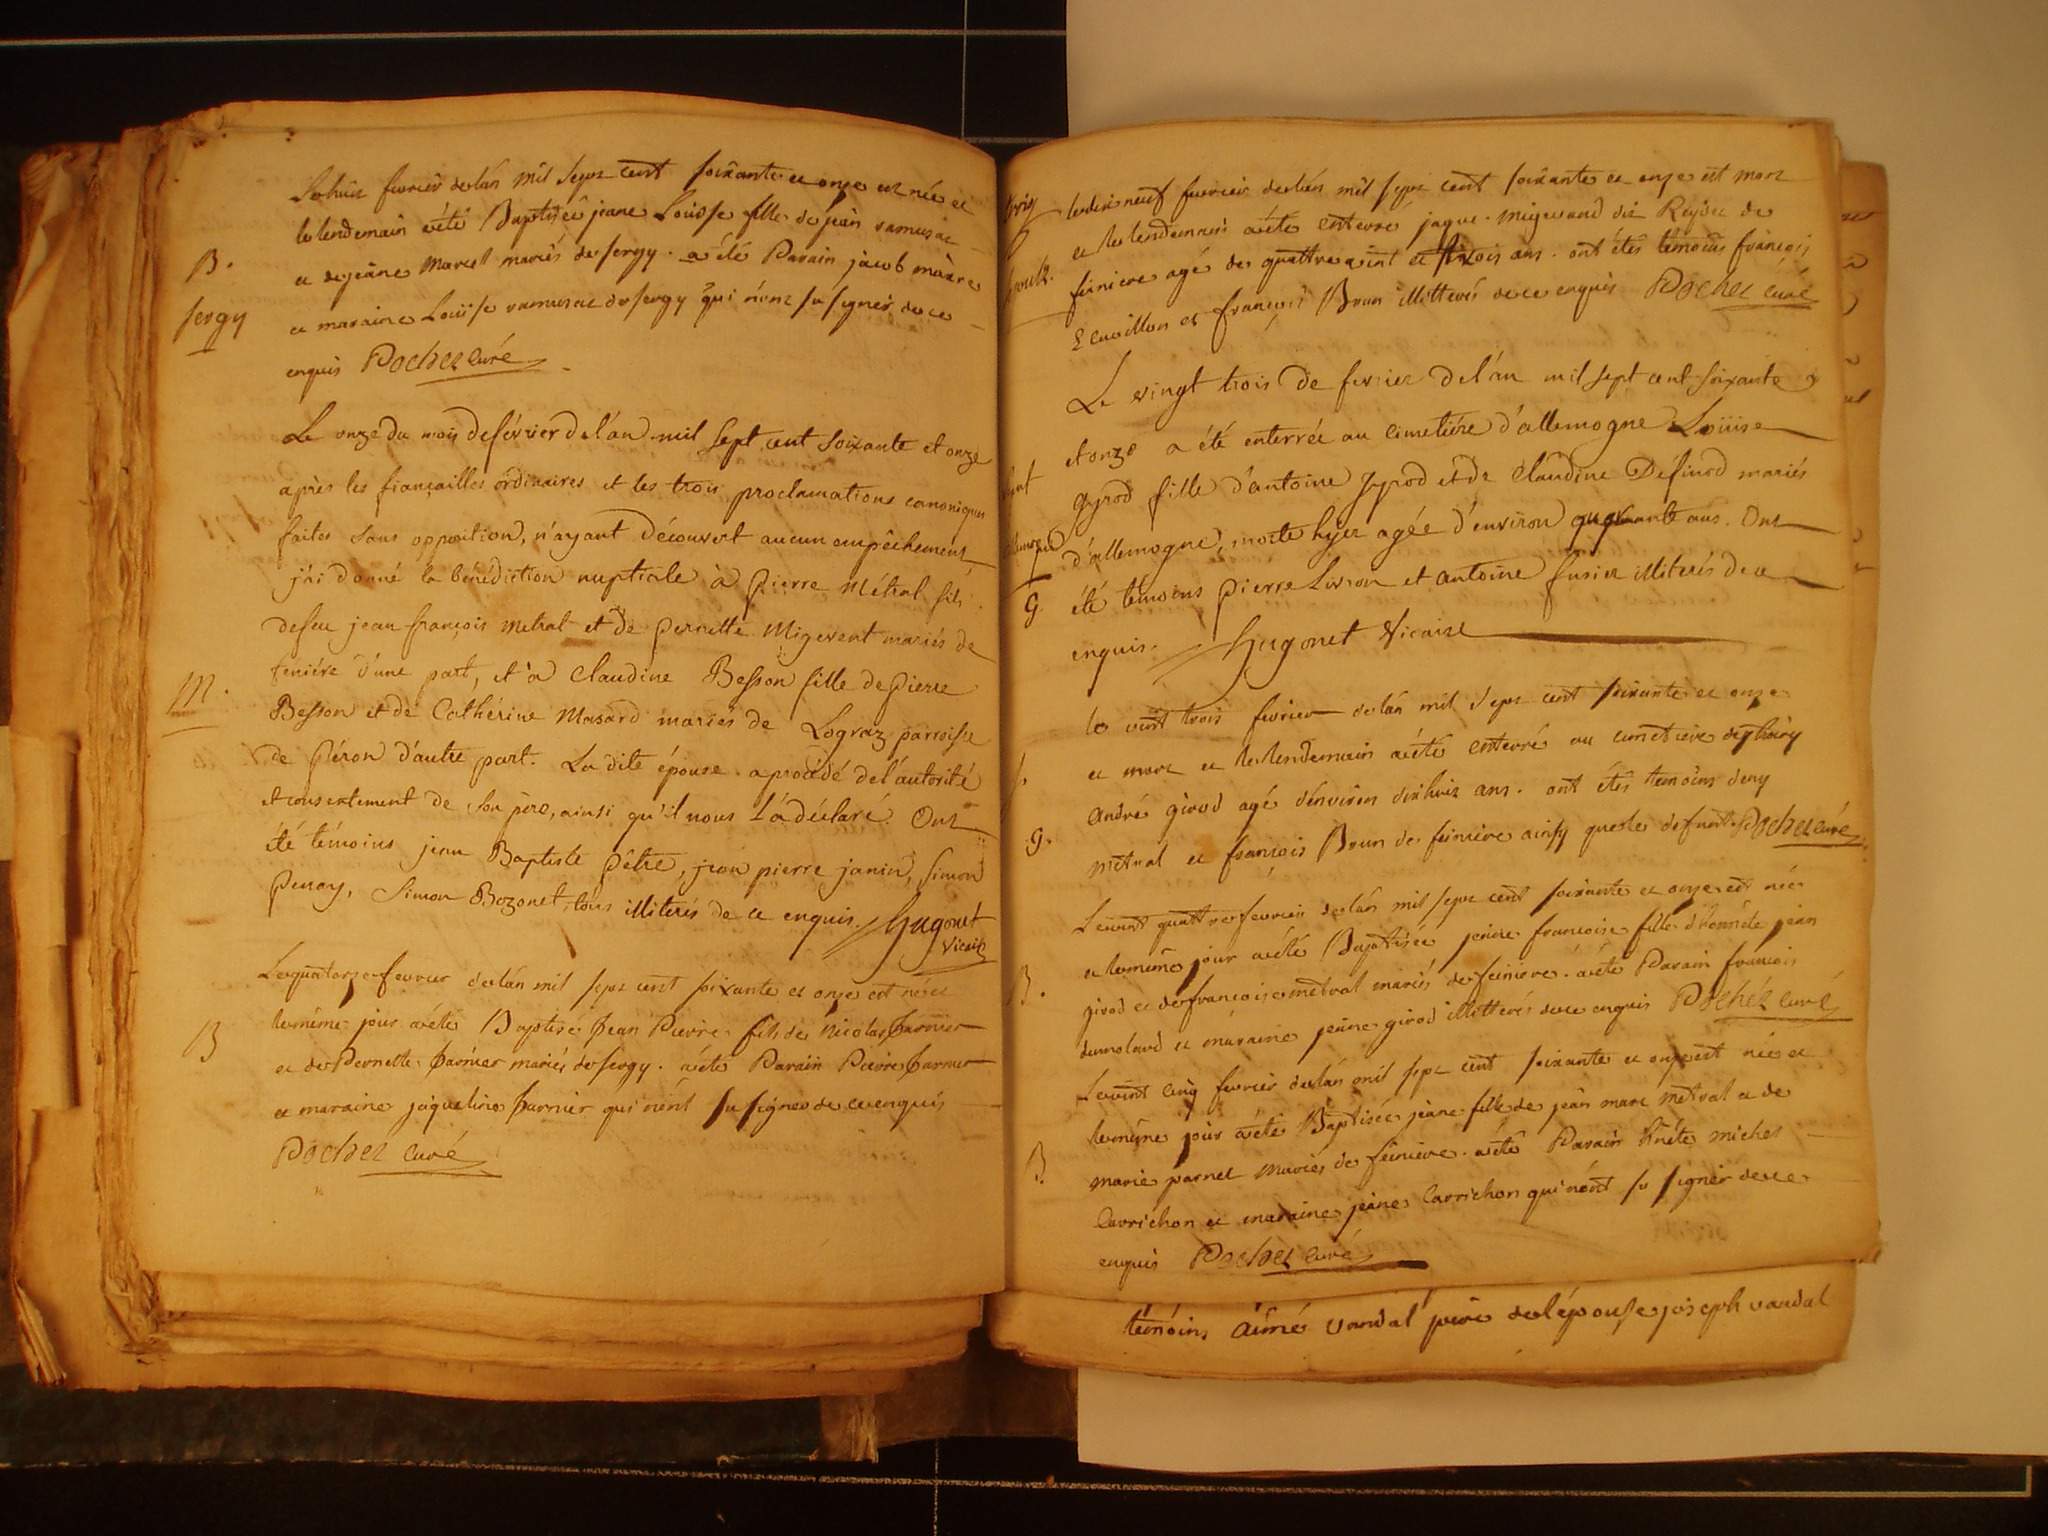 Le huit fevrier de lán mil sept cent soixante et onze est née et
le lendemain aété Baptiseé jeane Louisse fille de jean ramusac
B. et de jeane Marcel mariés de sergy. a été Parain jacob maire
sergy et maraine Louise ramusac de sergy qui n'ont su signer de ce
enquis Pochet curé
Le onze du mois de février de l'án mil sept cent soixante et onze
après les fiançailles ordinaires et les trois proclamations canoniques
faites sans opposition, n'ayant découvert aucun empêchement
j'ai donné la bénédiction nuptiale à pierre Métral fils
de feu jean françois metral et de pernette Migevent mariés de
feniére d'une part, et à Claudine Besson fille de pierre
M. Besson et de Cathérine Masard mariés de Logras parroisse
de Péron d'autre part. La dite épouse a procédé de l'autorité
et consentement de son père, ainsi qu'il nous l'a déclaré. Ont
été témoins jean Baptiste pêtre, jean pierre janin, simon
penay, Simon Bozonet, tous illiterés de ce enquis. Hugonet
Vicaire
Le quatorze fevrier de lán mil sept cent soixante et onze est né et
le même jour aété Baptisé Jean Pierre fils de Nicolas
B et de Pernette mariés de sergy. aété Parain Pierre
et maraine jaqueline qui n'ont su signer de ce enquis
Pochet curé
le dix neuf fevrier de lán mil sept cent soixante et onze est mort
et le lendemain aété enterré jaque migevand dit de
feiniere agé de quattre vint et trois ans. ont étés temoins françois
et françois Brun illitterés de ce enquis Pochet curé
Le vingt trois de fevrier de l'án mil sept cent soixante
et onze a été enterrée au cimetiére d'allemogne Loüise
gyrod fille d'antoine gyrod et de Claudine Définod mariés
d'allemogne, morte hyer agée d'environ quarante ans. Ont
G. été témoins pierre Livron et antoine fusier illiterés de ce
enquis. Hugonet Vicaire
le vint trois fevrier de lán mil sept cent soixante et onze
est mort et le lendemain aété enterré au cimetiere de thoiry
André girod agé d'environ dixhuit ans. ont étés temoins deny
g. métral et françois Brun de feiniere ainsy que le defunt Pochet curé
Le vint quattre fevrier de lán mil sept cent soixante et onze est née
et le même jour aété Baptisée jeane francoise fille d'honnête jean
B. girod et de francoise métral mariés de feiniere. aété Parain françois
dumolard et maraine jeane girod illitterés de ce enquis Pochet curé
Le vint cinq fevrier de lán mil sept cent soixante et onze est née et
le même jour aété Baptisée jeane fille de jean marc métral et de
B. marie parnet mariés de feiniere. aété Parain hnéte michel
Carrichon et maraine jeane Carrichon qui n'ont su signer de ce
enquis Pochet curé
témoins aimé vandal père de l'épouse joseph vandal